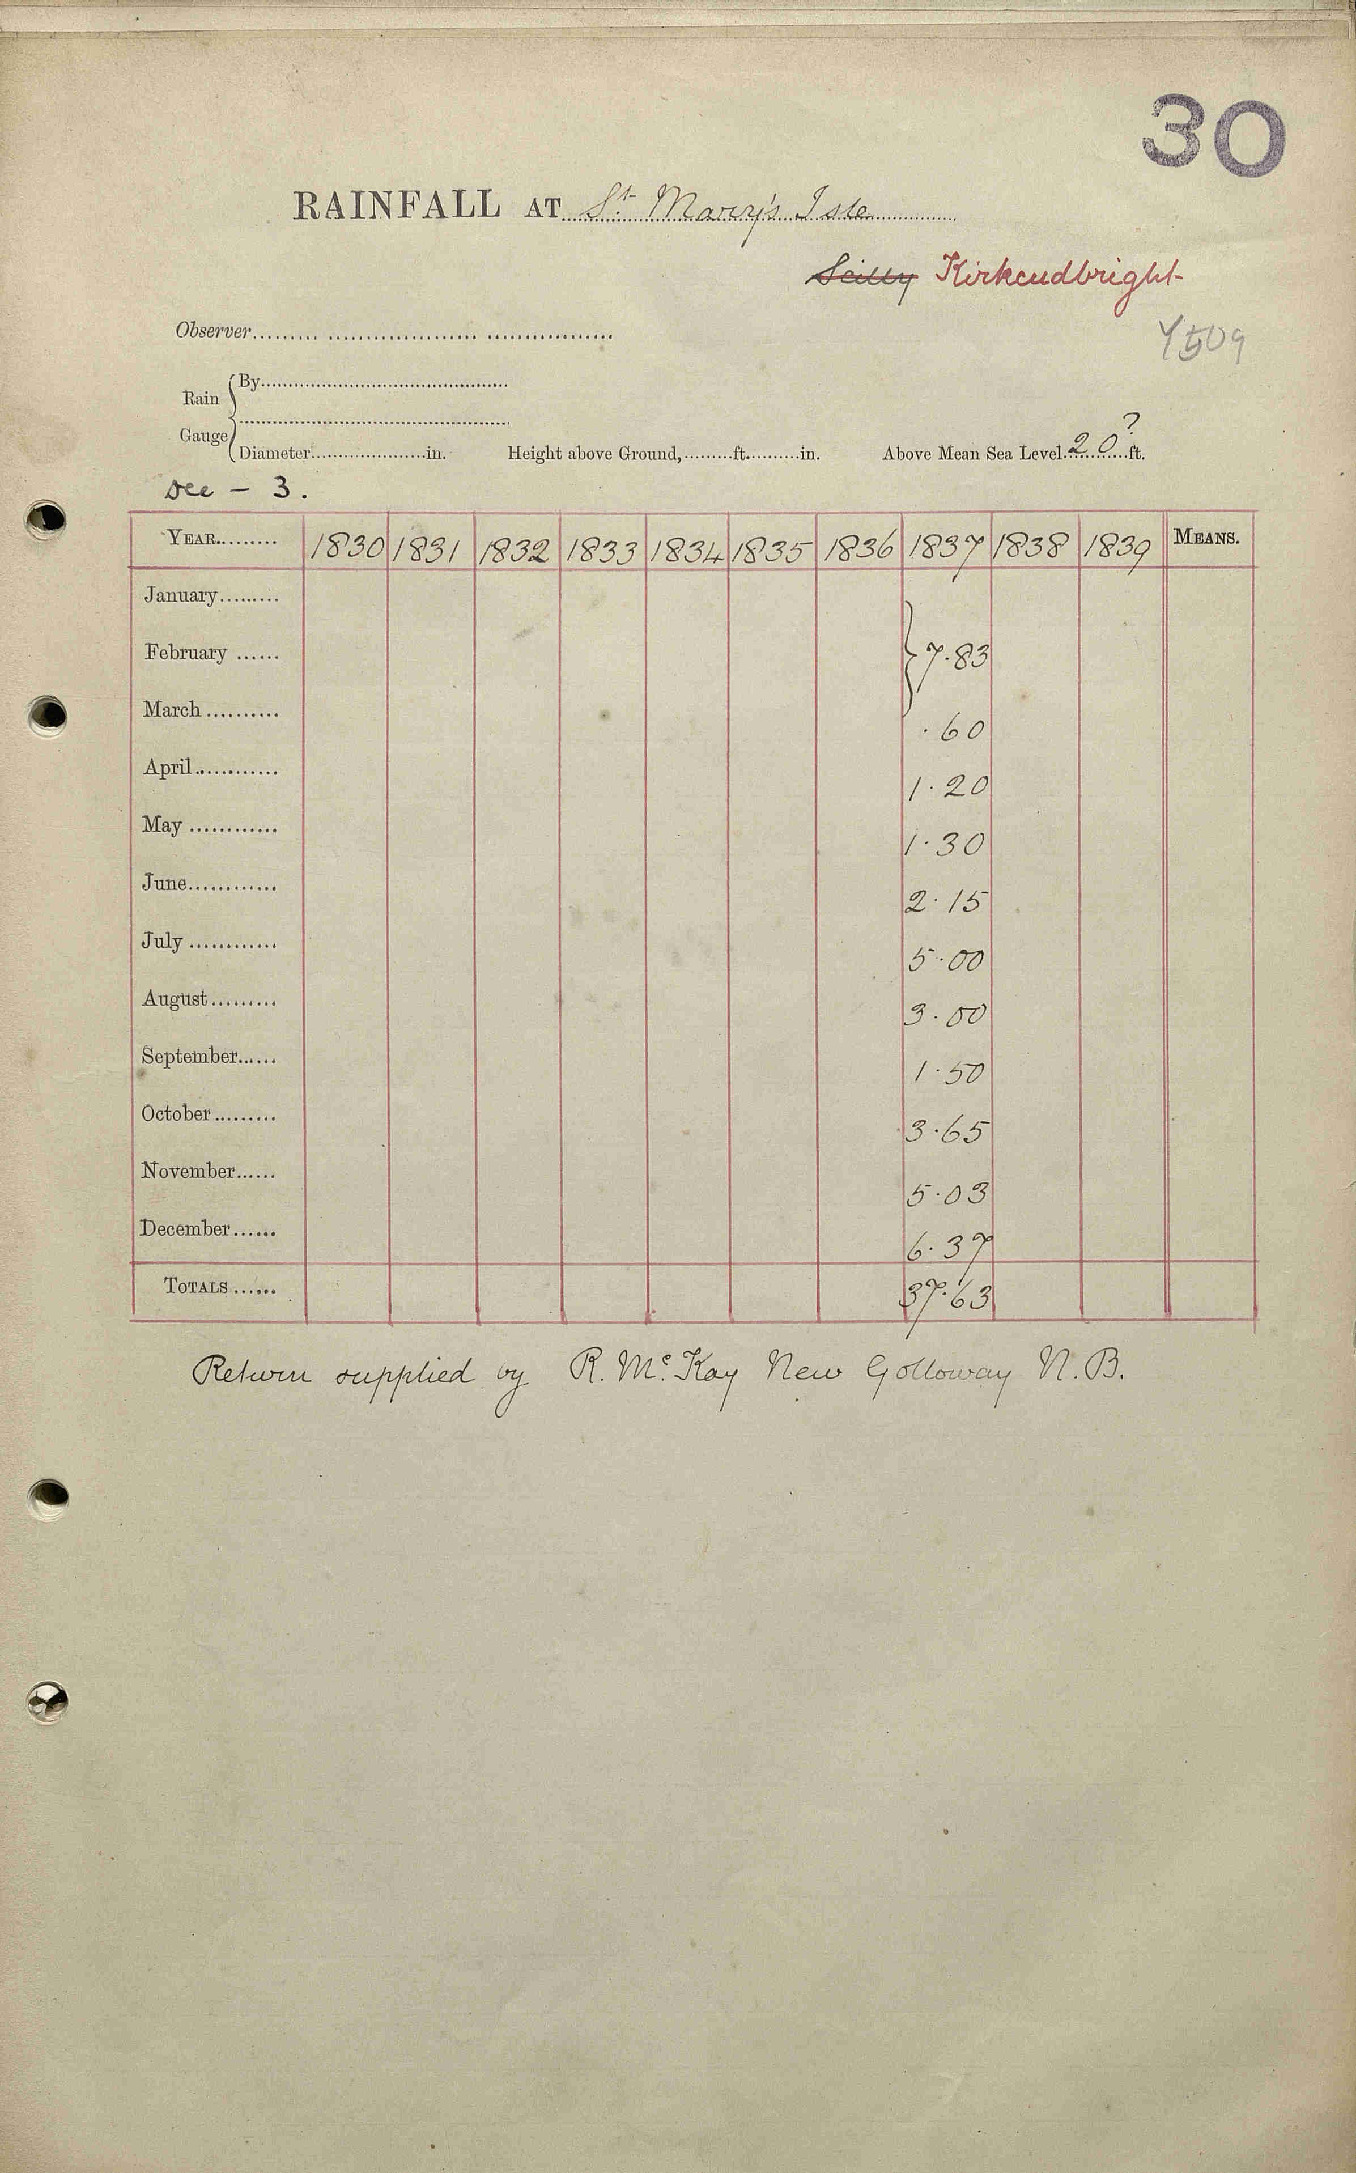 30
RAINFALL AT St. Mary's Isle
Scilly Kirkcudbright
Observer
4509
Rain Gauge
By
Diameter in. Height above Ground, ft. in. Above Mean Sea Level 20? ft.
Dec - 3.
YEAR 1830 1831 1832 1833 1834 1835 1836 1837 1838 1839 MEANS.
January
February 7.83
March .60
April 1.20
May 1.30
June 2.15
July 5.00
August 3.00
September 1.50
October 3.65
November 5.03
December 6.37
TOTALS 37.63
Return supplied by R. Mc. Kay New Golloway N.B.